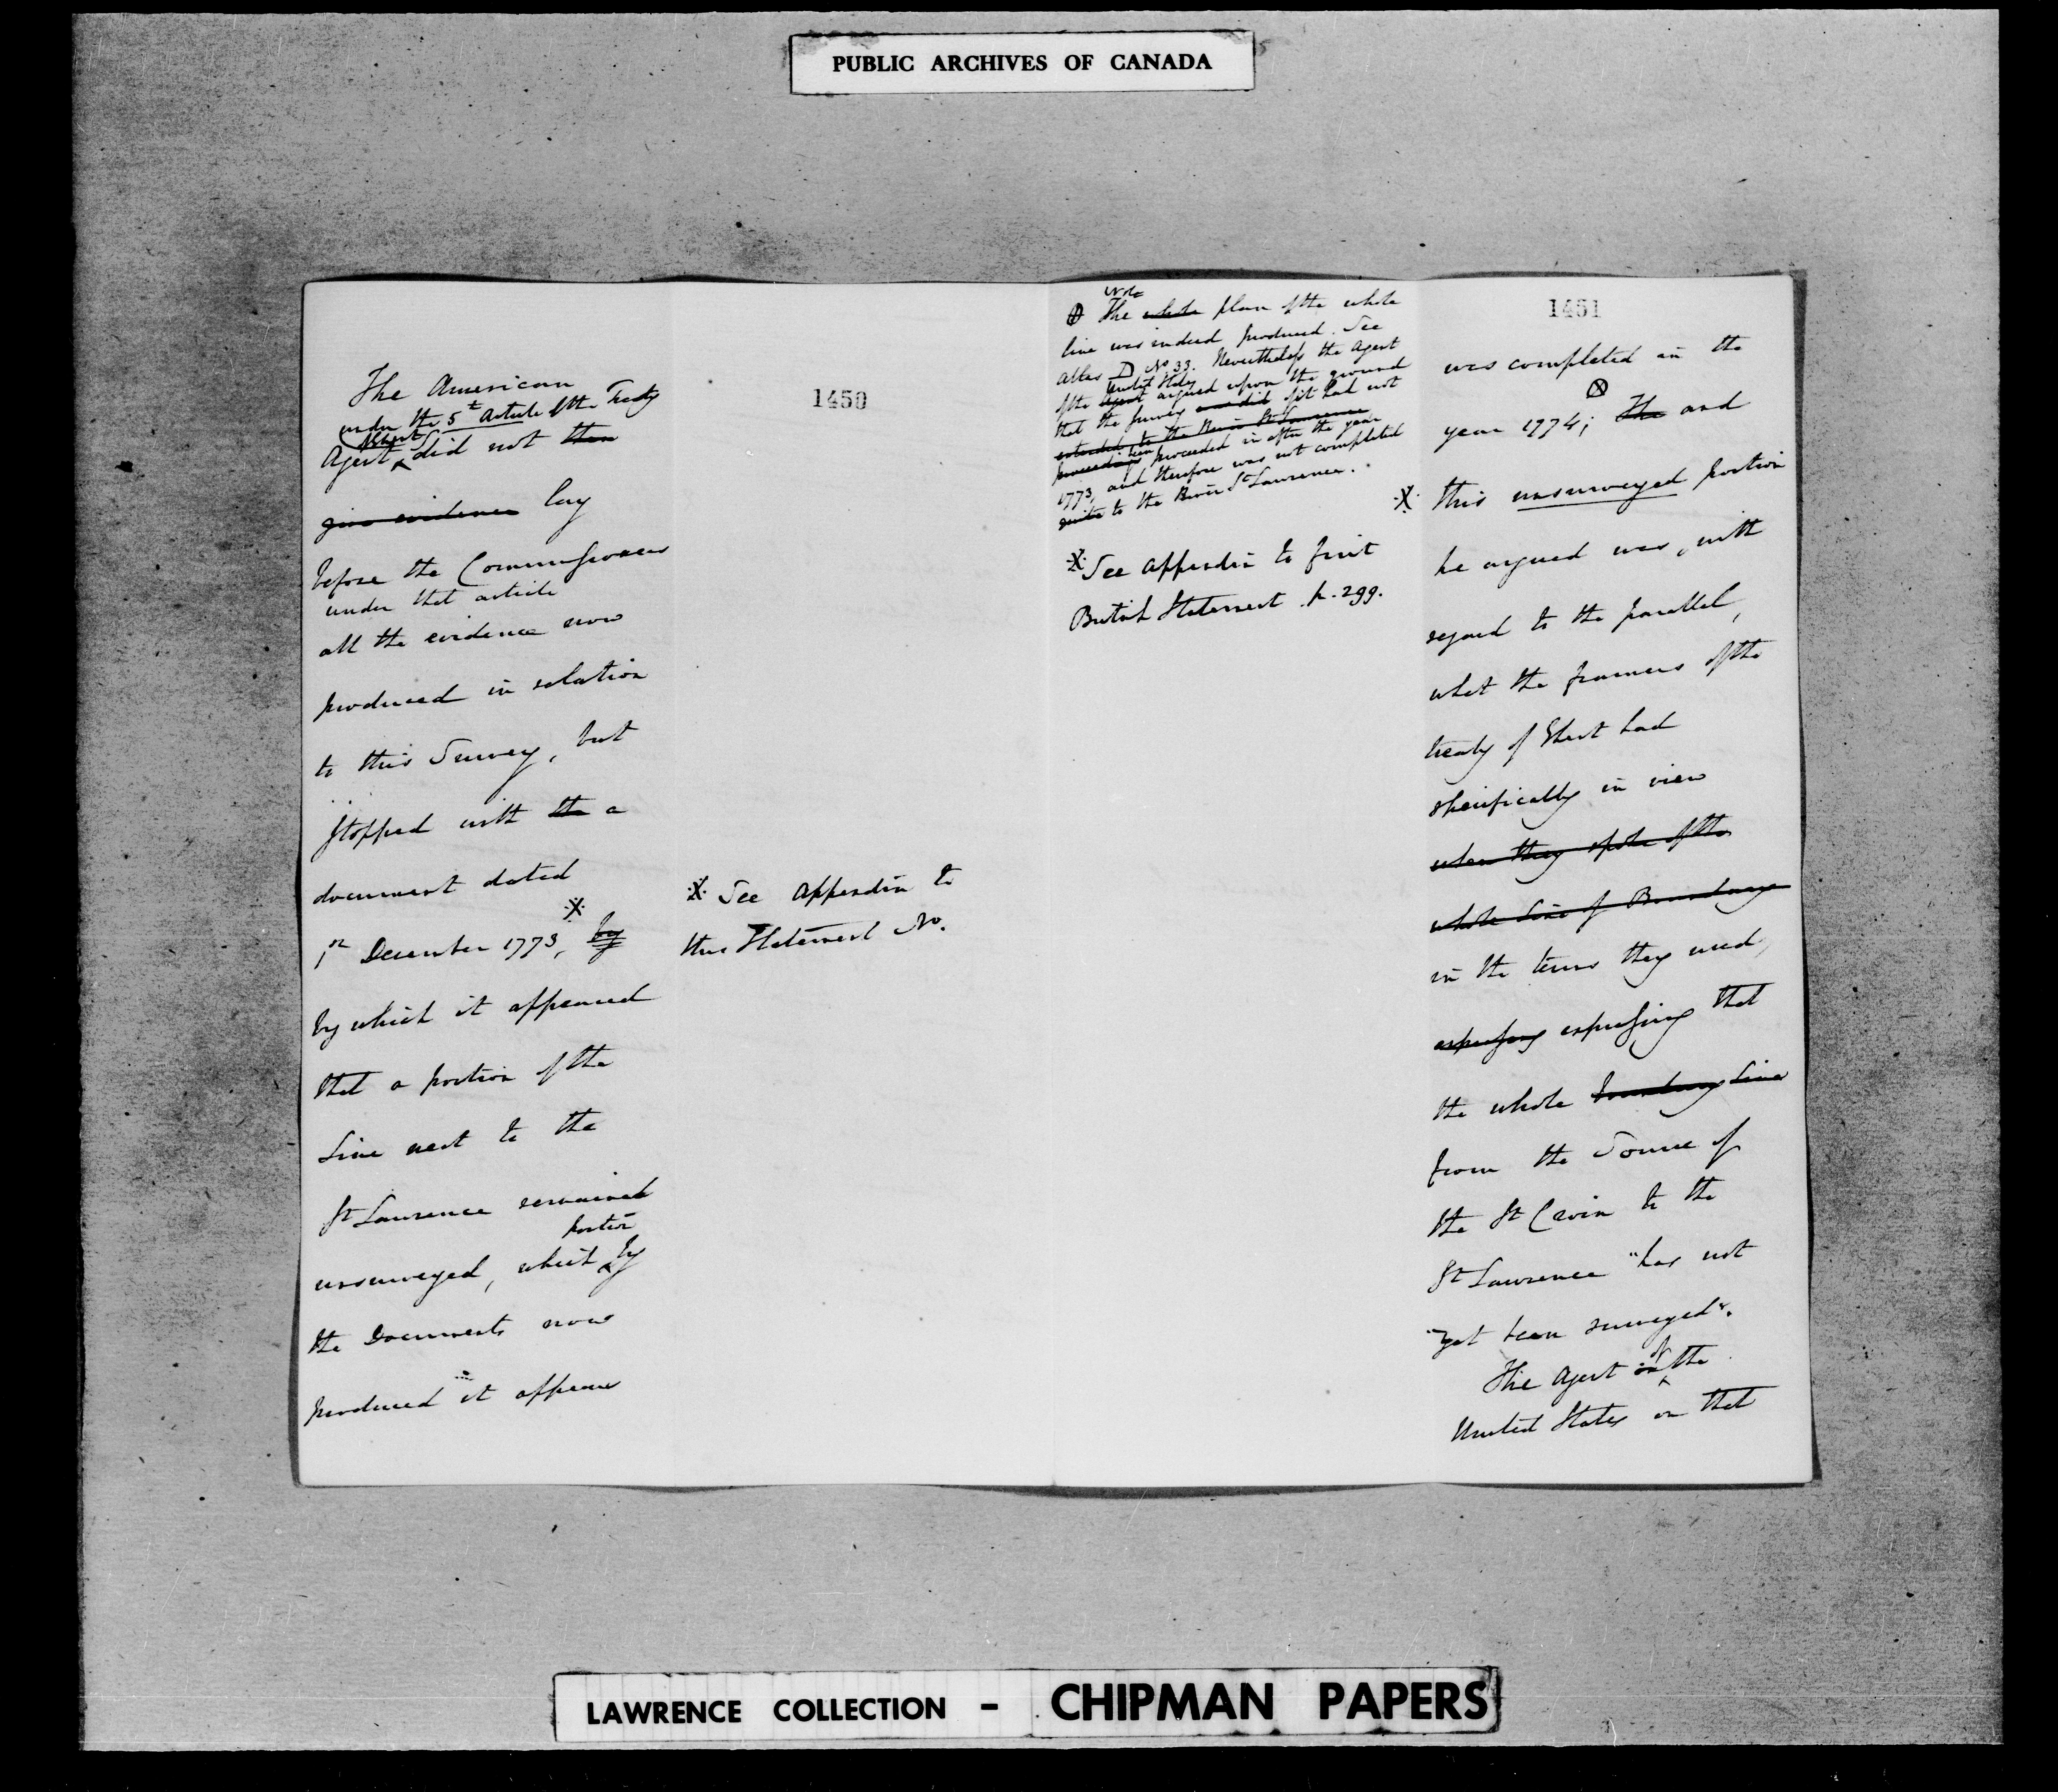 PUBLIC ARCHIVES OF CANADA
1450
The American
under the 5t Article of the Treaty
Agent did not then
give evidence lay
before the Commissioners
under that article
all the evidence now
produced in relation
to this Survey, but
stopped with the a
document dated
1st December 1773, by
by which it appeared
that a portion of the
Line next to the
St Lawrence remained
portion
unsurveyed, which by
the Documents now
produced it appears
※ See Appendix to
this Statement No.
Note
The whole plan of the whole
line was indeed produced. See
Atlas D No 33. Nevertheless the Agent
United States
of the Agent argued upon the ground
that the survey of it had not
extended to the River St Lawrence
proceeded in after the year
1773, and therefore was not completed
quite to the River St Lawrence.
※ See Appendix to first
British Statement p. 299.
1451
was completed in the
year 1774; The and
※ this unsurveyed portion
he argued was, with
regard to the parallel,
what the framers of the
treaty of Ghent had
specifically in view
when they spoke of the
whole Line of Boundary
in the terms they used,
expressing expressing that
the whole boundary Line
from the Source of
the St Croix to the
St Lawrence "has not
"yet been surveyed".
The Agent of the
United States on that
LAWRENCE COLLECTION - CHIPMAN PAPERS